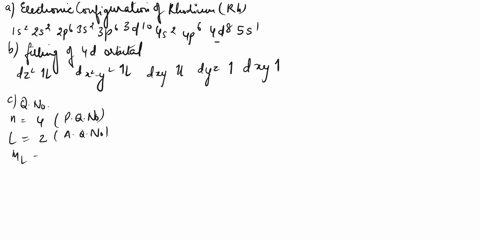 a) Electronic Configuration of Rhodium (Rh)
1s² 2s² 2p⁶ 3s² 3p⁶ 3d¹⁰ 4s² 4p⁶ 4d⁸ 5s¹
b) filling of 4d orbital
dz² 1l dx²-y² 1l dxy 1l dyz 1 dxy 1
c) Q. No.
n = 4 (P.Q.No)
L = 2 (A.Q.No)
ML =